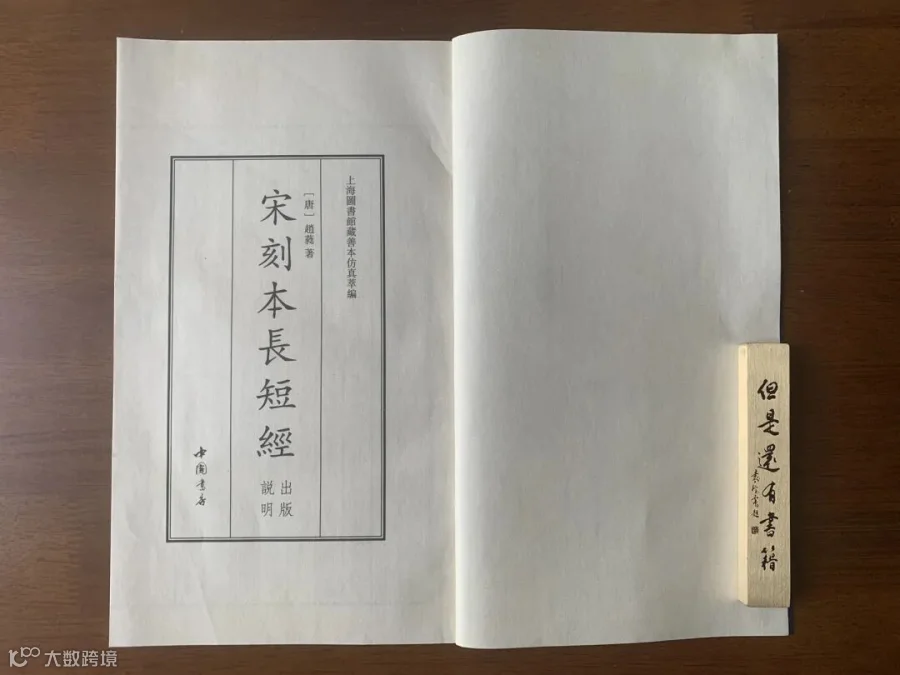 上海圖書館藏善本仿真萃編
［唐］趙蕤 著
宋刻本長短經
出版
説明
中國書店
但是還有書籍
大数跨境